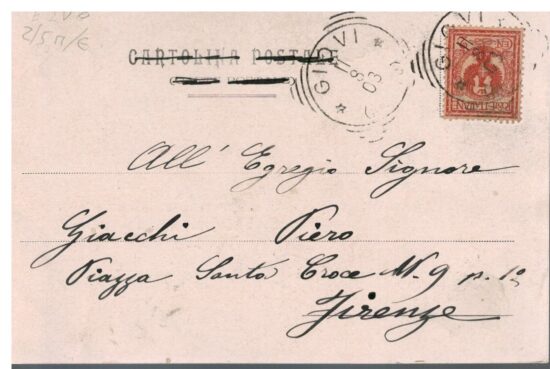 2/5 π/€
CARTOLINA POSTALE
GIOVI
03
GIOVI
All' Egregio Signore
Giacchi Piero
Piazza Santa Croce N. 9 p. 1º
Firenze